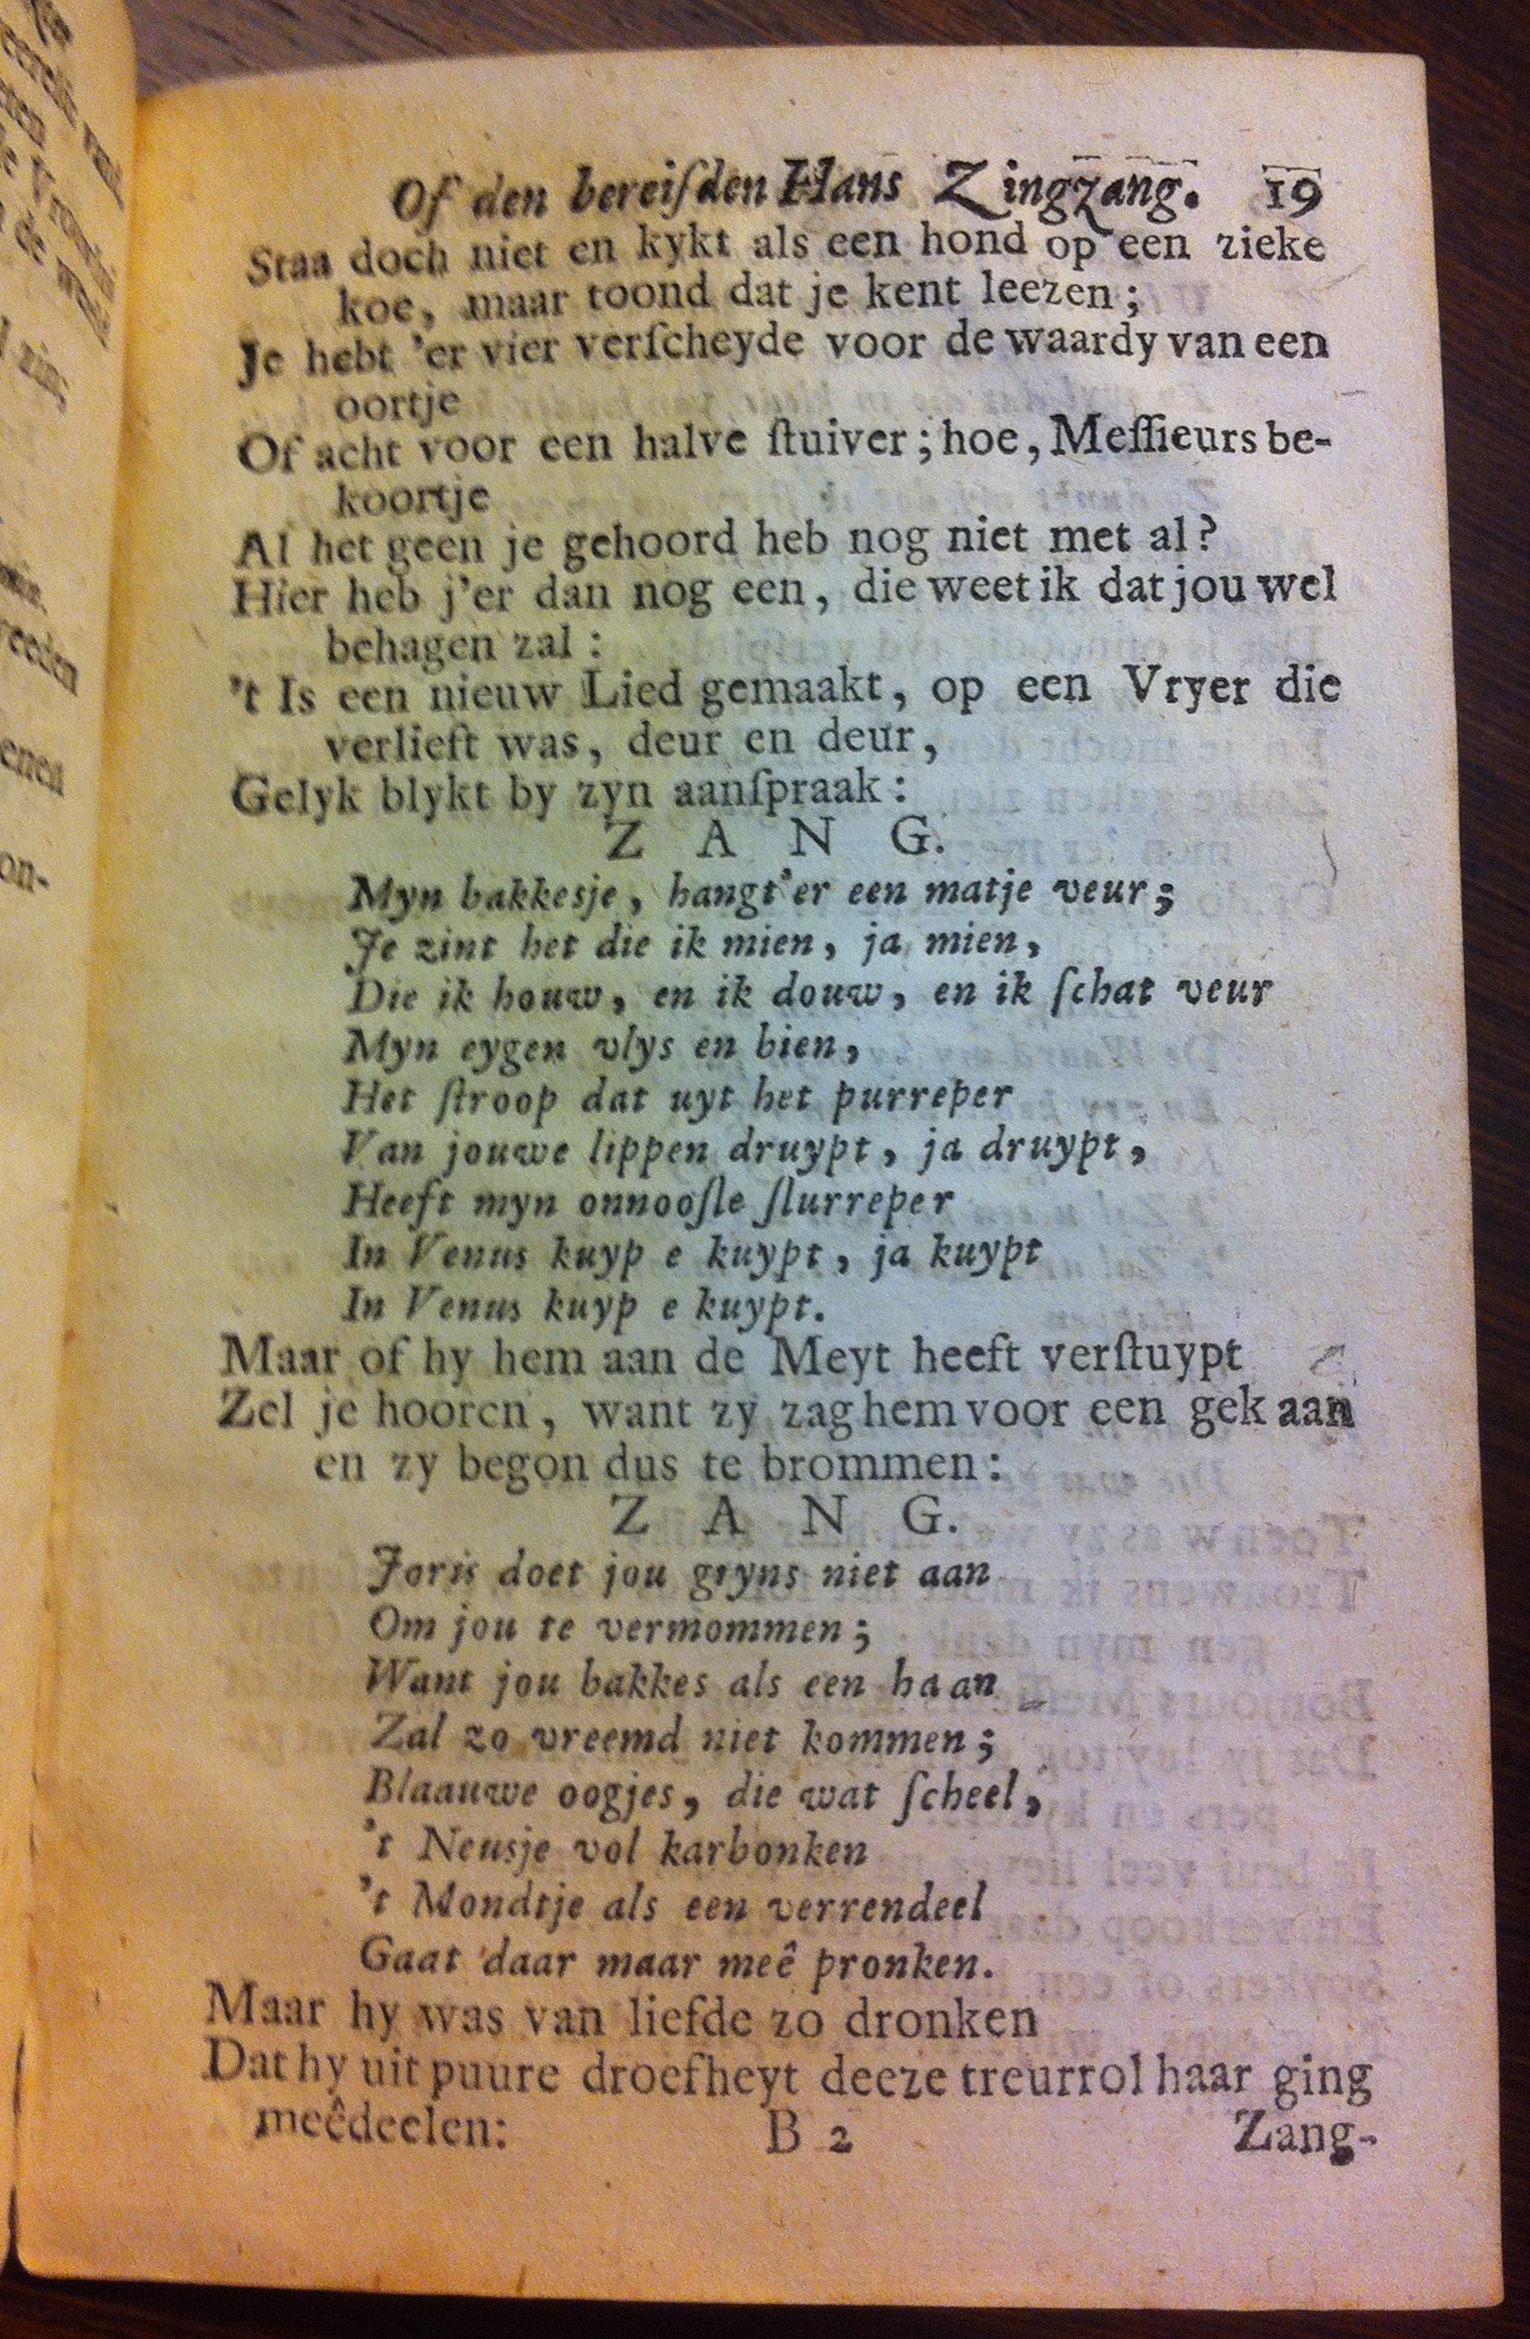 Of den bereiſden Hans Zingzang. 19
Staa doch niet en kykt als een hond op een zieke
koe, maar toond dat je kent leezen;
Je hebt 'er vier verſcheyde voor de waardy van een
oortje
Of acht voor een halve ſtuiver; hoe, Meſſieurs be-
koortje
Al het geen je gehoord heb nog niet met al?
Hier heb j'er dan nog een, die weet ik dat jou wel
behagen zal:
't Is een nieuw Lied gemaakt, op een Vryer die
verlieft was, deur en deur,
Gelyk blykt by zyn aanſpraak:
Z A N G.
Myn bakkesje, hangt'er een matje veur;
Je zint het die ik mien, ja mien,
Die ik houw, en ik douw, en ik ſchat veur
Myn eygen vlys en bien,
Het ſtroop dat uyt het purreper
Van jouwe lippen druypt, ja druypt,
Heeft myn onnooſle ſlurreper
In Venus kuyp e kuypt, ja kuypt
In Venus kuyp e kuypt.
Maar of hy hem aan de Meyt heeft verſtuypt
Zel je hooren, want zy zag hem voor een gek aan
en zy begon dus te brommen:
Z A N G.
Joris doet jou gryns niet aan
Om jou te vermommen;
Want jou bakkes als een haan
Zal zo vreemd niet kommen;
Blaauwe oogjes, die wat ſcheel,
't Neusje vol karbonken
't Mondtje als een verrendeel
Gaat daar maar meê pronken.
Maar hy was van liefde zo dronken
Dat hy uit puure droefheyt deeze treurrol haar ging
meêdeelen:
B 2
Zang-